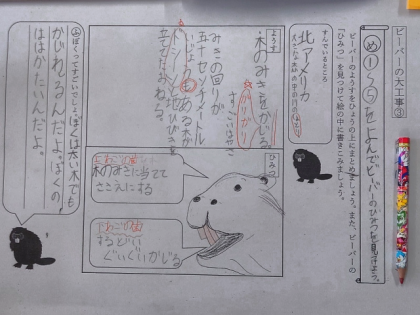 ビーバーの大工事③
め ①～⑤をよんでビーバーのひみつを見つけよう。
ビーバーのようすをひょうの上にまとめましょう。また、ビーバーの
「ひみつ」を見つけて絵の中に書きこみましょう。
すんでいるところ
北アメリカ
ようす
・木のみきをかじる。
ガリガリ
すごいはやさ
みきの回りが、
五十センチメートル
いじょうもある木が
ドシーンと地ひびきを
立ててたおれる。
ひみつ
上あごの歯
木のみきに当てて
ささえにする
下あごの歯
するどい
ぐいぐいかじる
ぼくってすごいでしょ。
ぼくは太い木でも
かじれるんだよ。ぼくの
はは かたいんだよ。